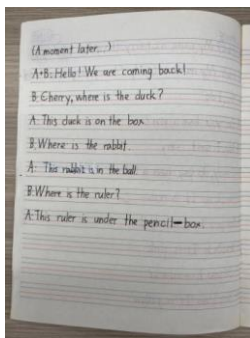 (A moment later...)
A+B: Hello! We are coming back!
B: Cherry, where is the duck?
A: This duck is on the box.
B: Where is the rabbit.
A: This rabbit is in the ball.
B: Where is the ruler?
A: This ruler is under the pencil-box.